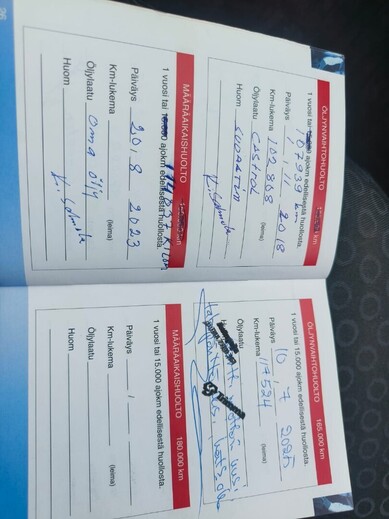 ÖLJYNVAIHTOHUOLTO km
107939 km
1 vuosi tai ajokm edellisestä huollosta.
Päiväys 1, 11 2018
Km-lukema 102808
(leima)
Öljylaatu CASTROL
Huom SUODATIN
MÄÄRÄAIKAISHUOLTO km
1 vuosi tai ajokm edellisestä huollosta.
Päiväys 20, 8 2023
Km-lukema
(leima)
Öljylaatu oma öljy
Huom
36
ÖLJYNVAIHTOHUOLTO 165.000 km
1 vuosi tai 15.000 ajokm edellisestä huollosta.
Päiväys 10, 7 2025
Km-lukema 117524
(leima)
Öljylaatu
MÄÄRÄAIKAISHUOLTO 180.000 km
1 vuosi tai 15.000 ajokm edellisestä huollosta.
Päiväys /
Km-lukema
(leima)
Öljylaatu
Huom